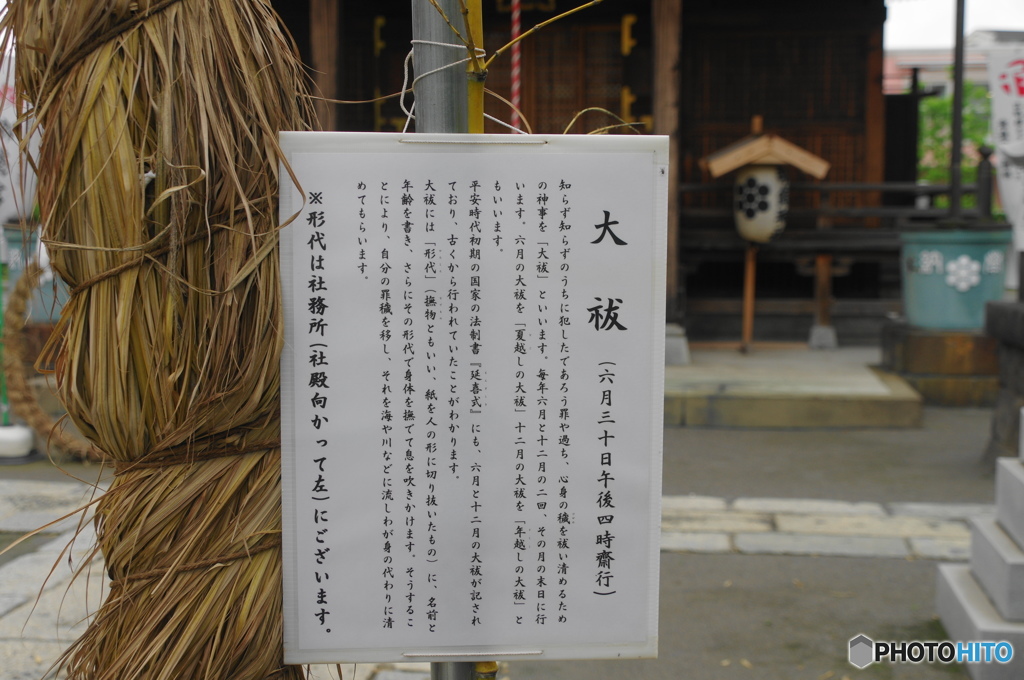 大祓(六月三十日午後四時齋行)
知らず知らずのうちに犯したであろう罪や過ち、心身の穢を祓い清めるため
の神事を「大祓」といいます。毎年六月と十二月の二回、その月の末日に行
います。六月の大祓を「夏越しの大祓」十二月の大祓を「年越しの大祓」と
もいいます。
平安時代初期の国家の法制書『延喜式』にも、六月と十二月の大祓が記され
ており、古くから行われていたことがわかります。
大祓には「形代」(撫物ともいい、紙を人の形に切り抜いたもの)に、名前と
年齢を書き、さらにその形代で身体を撫でて息を吹きかけます。そうするこ
とにより、自分の罪穢を移し、それを海や川などに流しわが身の代わりに清
めてもらいます。
※形代は社務所(社殿向かって左)にございます。
PHOTOHITO